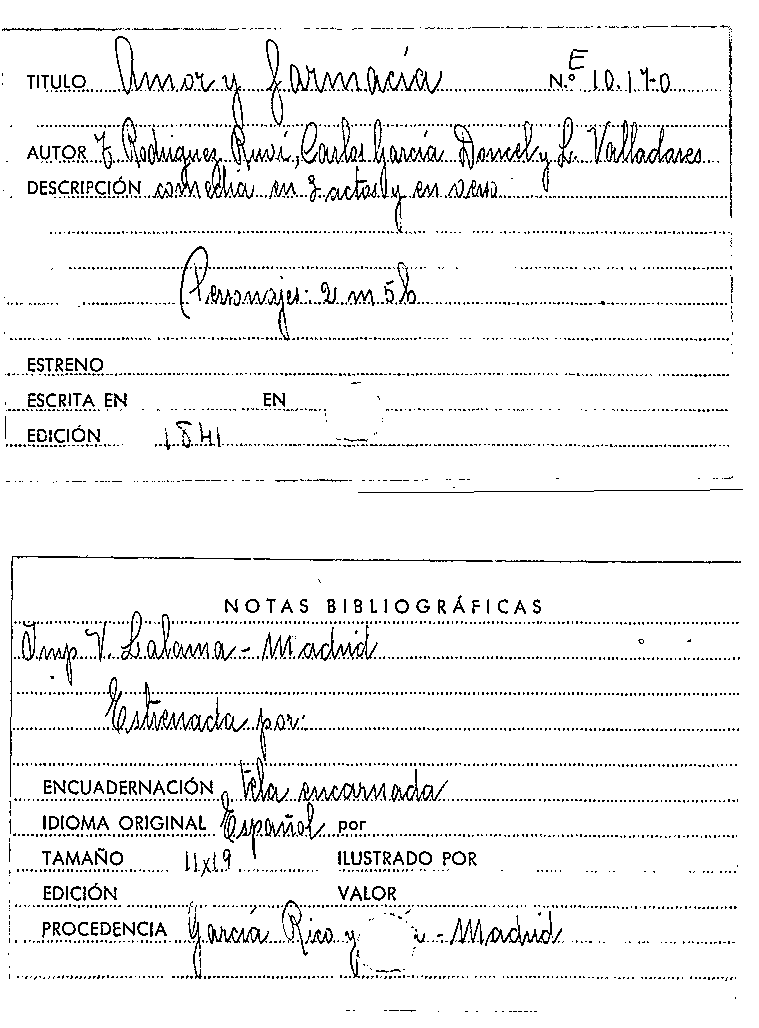 TITULO Amor y farmacia N.º E 10.170
AUTOR T. Rodriguez Ruví, Carlos García Doncel y L. Valladares
DESCRIPCIÓN comedia en 3 actos y en verso
Personajes: 2 m 5 h
ESTRENO
ESCRITA EN EN
EDICIÓN 1841
NOTAS BIBLIOGRÁFICAS
Imp V. Lalama - Madrid
Estrenada por:
ENCUADERNACIÓN tela encarnada
IDIOMA ORIGINAL Español por
TAMAÑO 11x19 ILUSTRADO POR
EDICIÓN VALOR
PROCEDENCIA García Rico y - Madrid